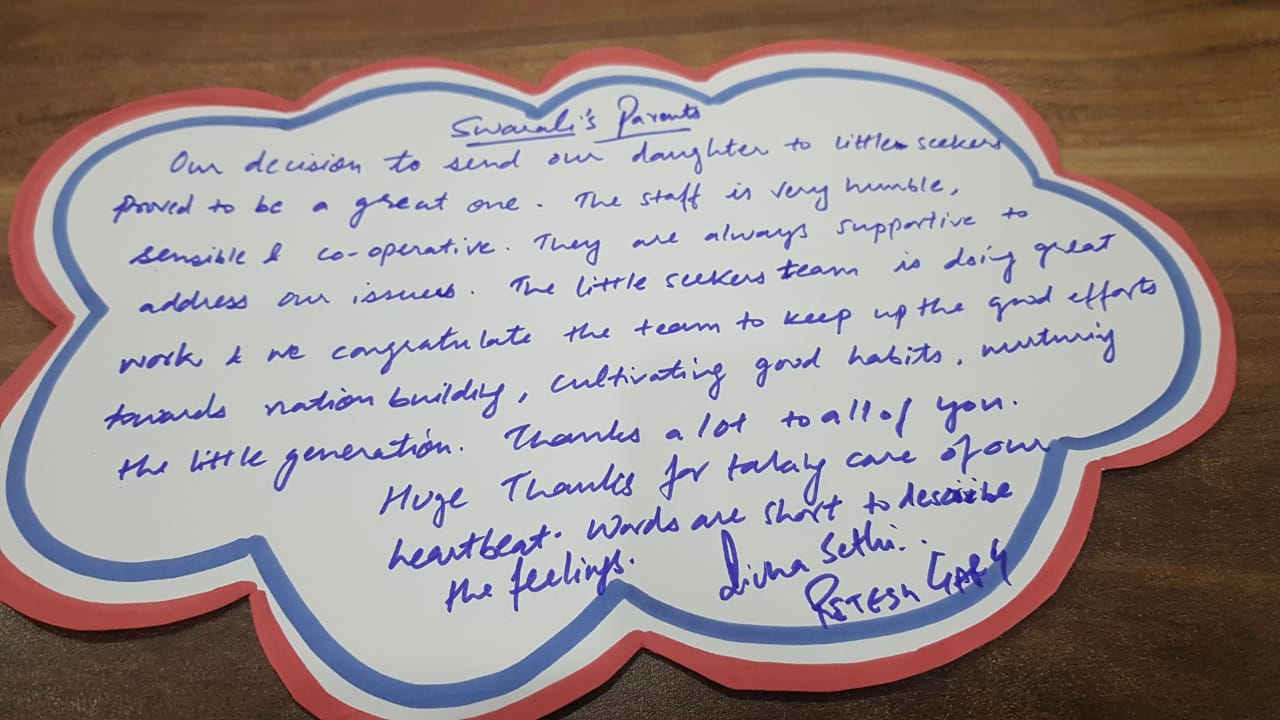 Swarali's Parents
Our decision to send our daughter to little seekers
proved to be a great one. The staff is very humble,
sensible & co-operative. They are always supportive to
address our issues. The little seekers team is doing great
work & we congratulate the team to keep up the good efforts
towards nation building, cultivating good habits, nurturing
the little generation. Thanks a lot to all of you.
Huge Thanks for taking care of our
heartbeat. Words are short to describe
the feelings.
Sethi.
RITESH GARG